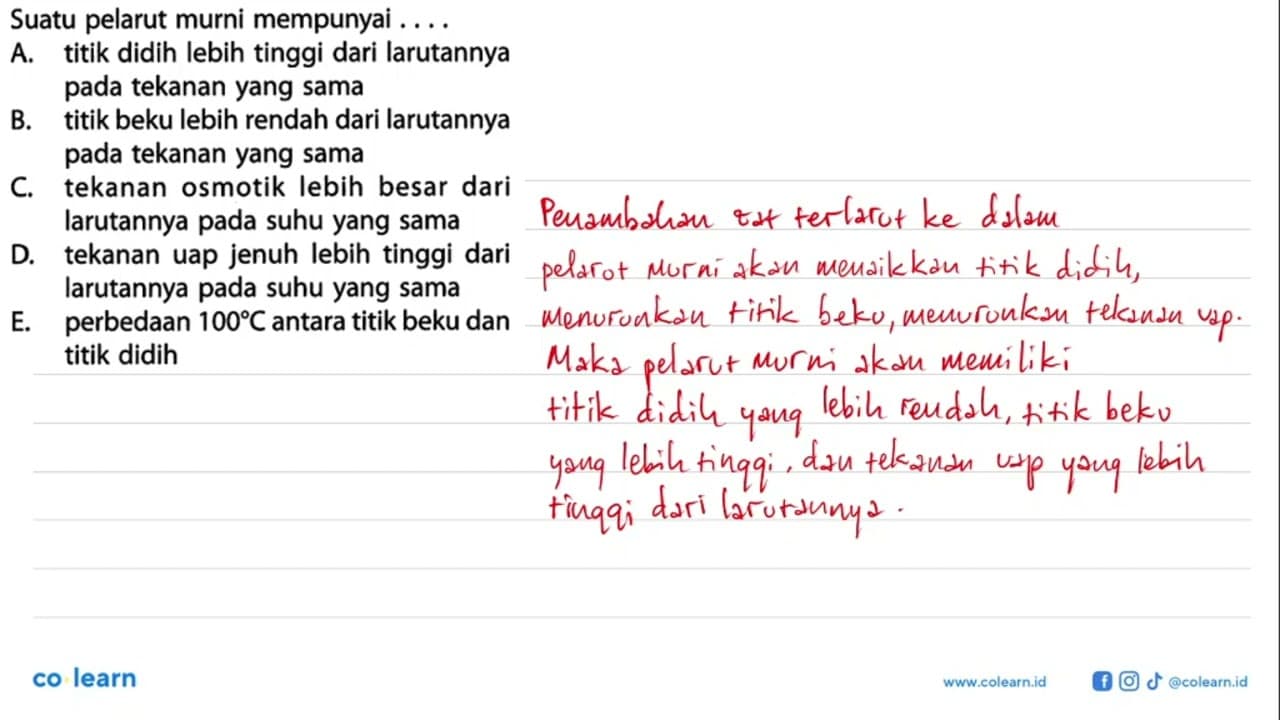 Suatu pelarut murni mempunyai . . . .
A. titik didih lebih tinggi dari larutannya
pada tekanan yang sama
B. titik beku lebih rendah dari larutannya
pada tekanan yang sama
C. tekanan osmotik lebih besar dari
larutannya pada suhu yang sama
D. tekanan uap jenuh lebih tinggi dari
larutannya pada suhu yang sama
E. perbedaan 100°C antara titik beku dan
titik didih
Penambahan zat terlarut ke dalam
pelarut murni akan menaikkan titik didih,
menurunkan titik beku, menurunkan tekanan uap.
Maka pelarut murni akan memiliki
titik didih yang lebih rendah, titik beku
yang lebih tinggi, dan tekanan uap yang lebih
tinggi dari larutannya.
co learn
www.colearn.id
@colearn.id